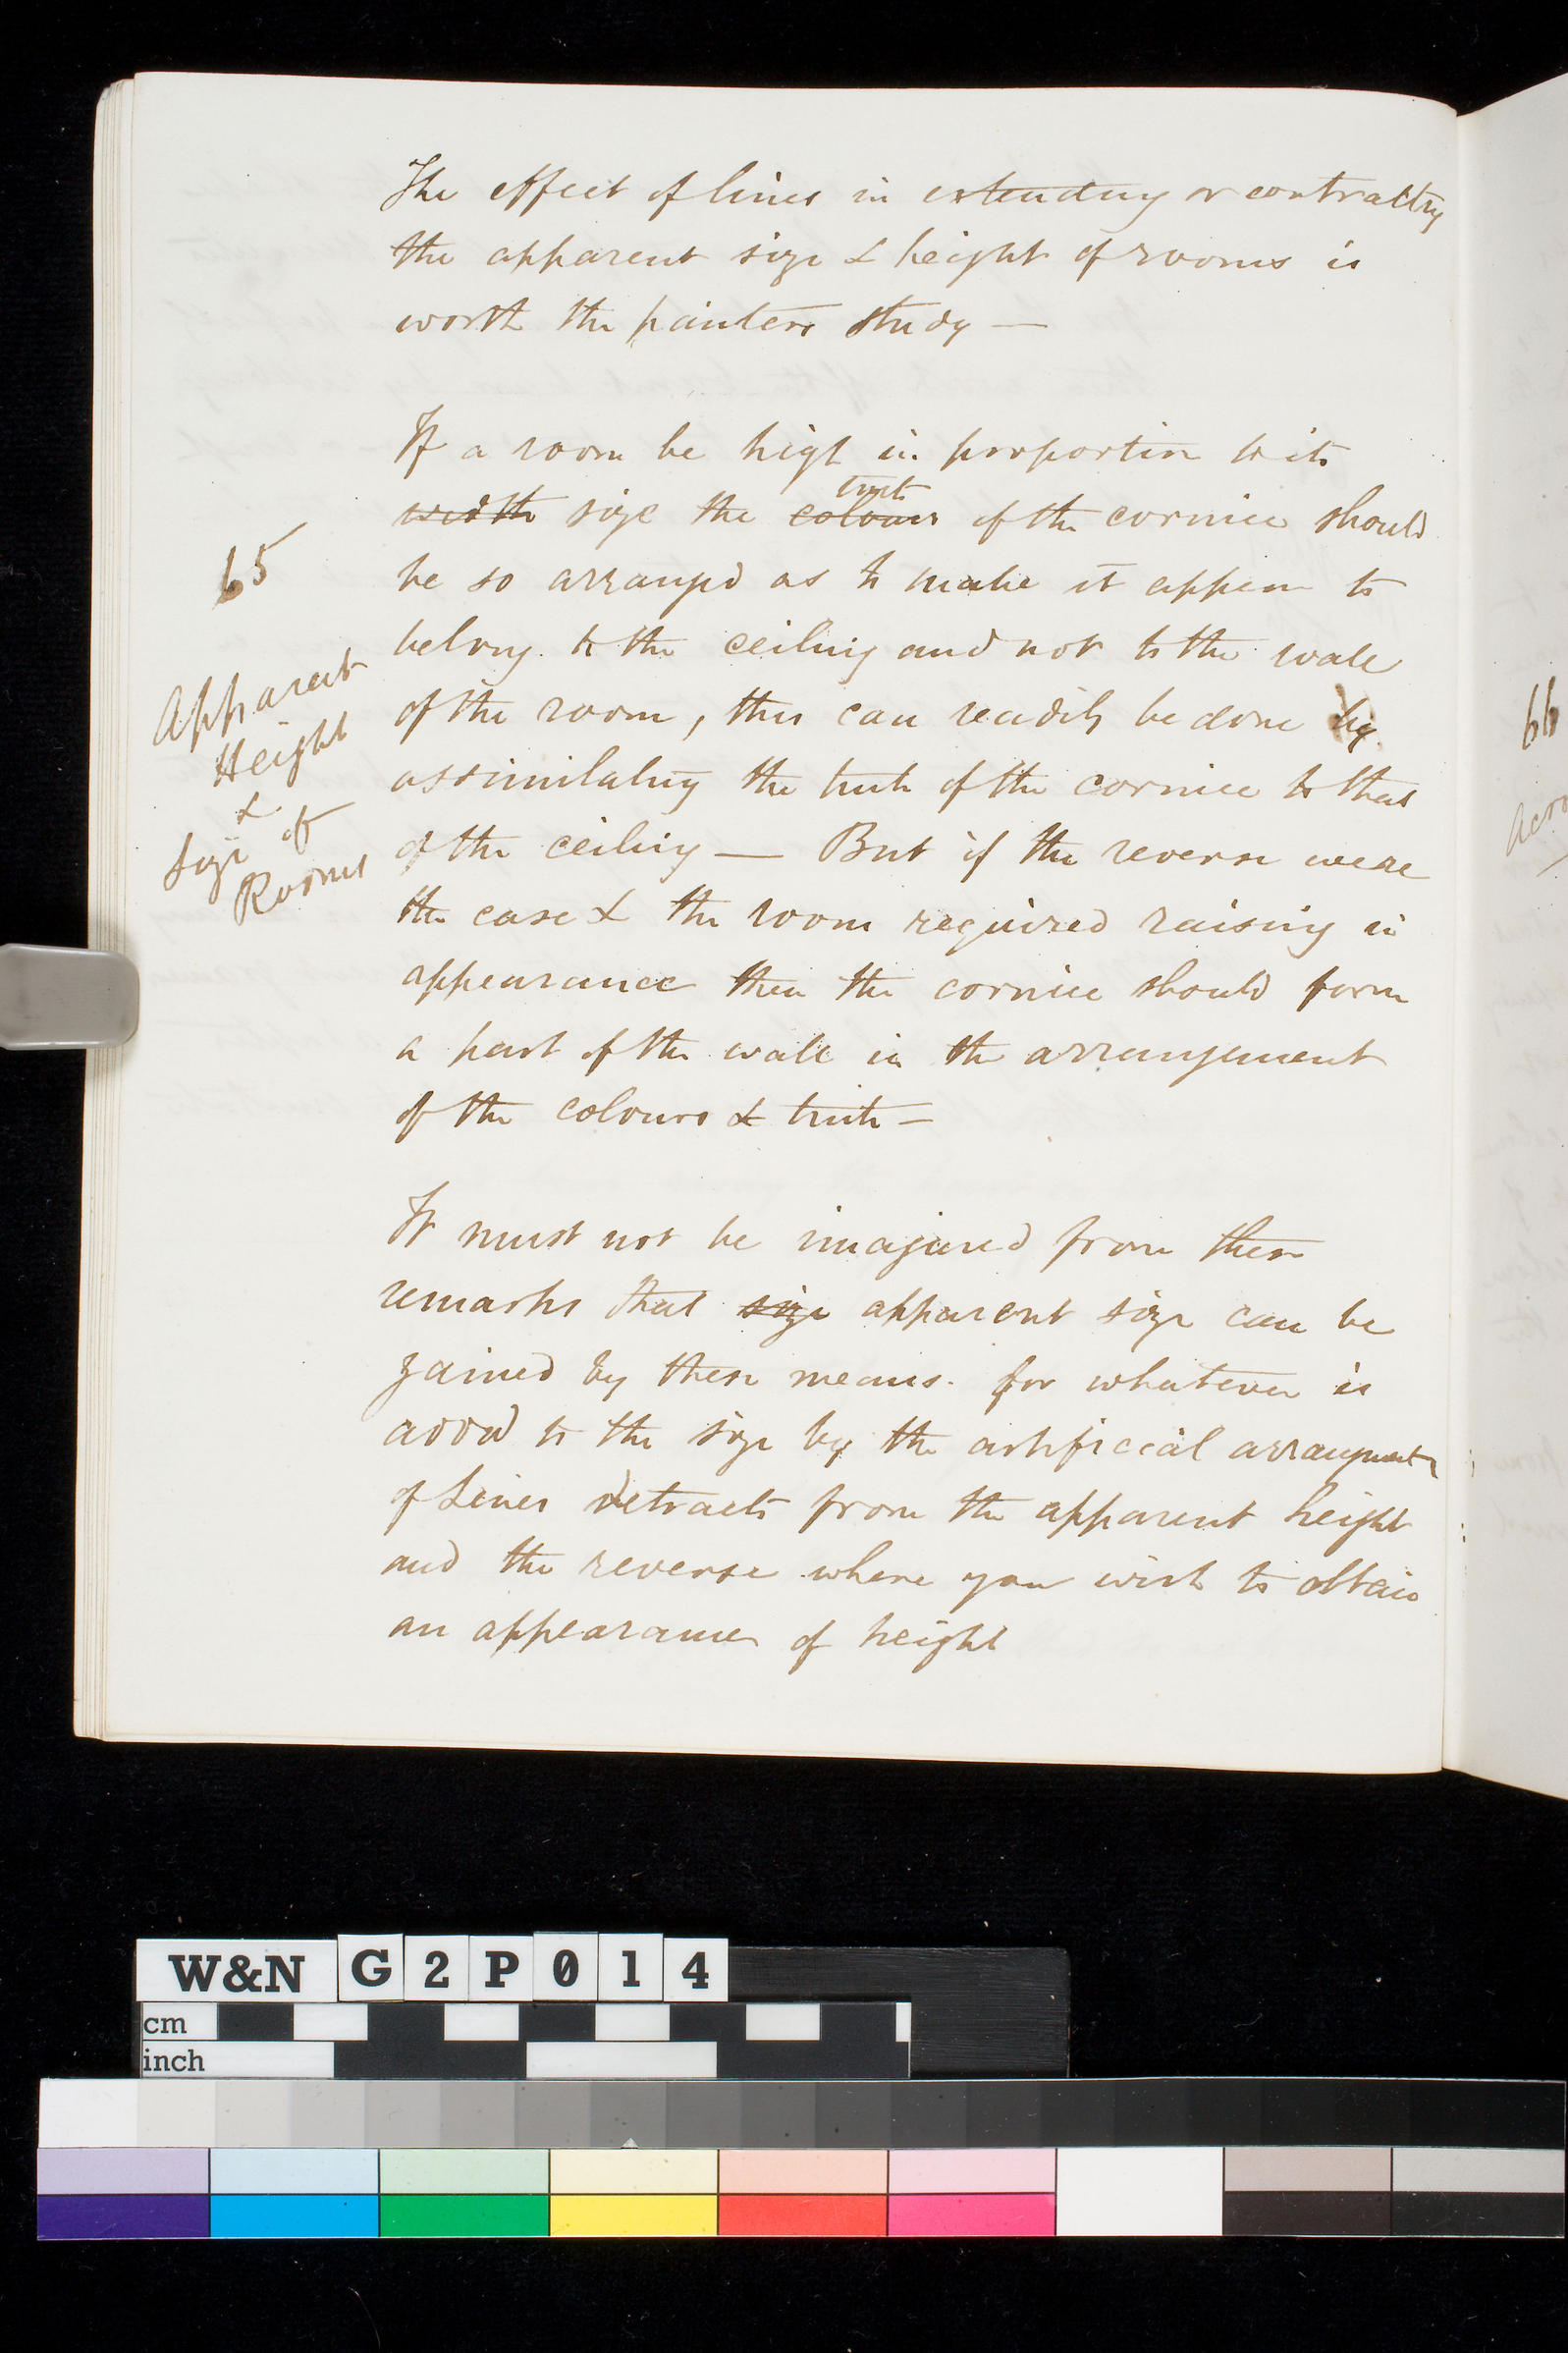 The effect of lines in extending or contracting
the apparent size & height of rooms is
worth the painters study —
If a room be high in proportion to its
tints
width size the colours of the cornice should
be so arranged as to make it appear to
belong to the ceiling and not to the wall
of the room, this can readily be done by
assimilating the tints of the cornice to that
of the ceiling — But if the reverse were
the case & the room required raising in
appearance then the cornice should form
a part of the wall in the arrangement
of the colours & tints —
It must not be imagined from these
remarks that size apparent size can be
gained by these means. for whatever is
added to the size by the artificial arrangements
of Lines detracts from the apparent height
and the reverse where you wish to obtain
an appearance of height
65
Apparent
Height
&
Size of
Rooms
66
W&N G2P014
cm
inch